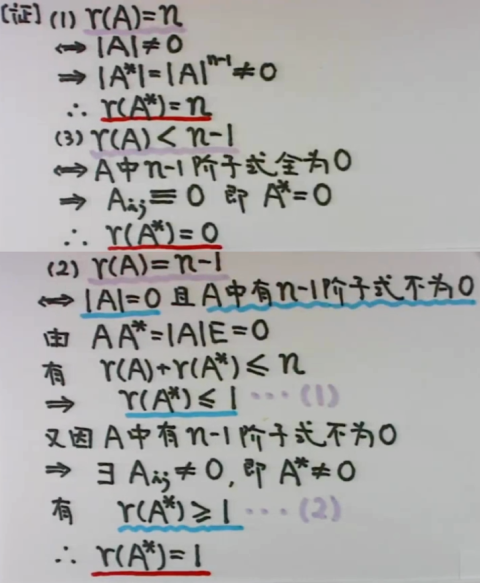 [证] (1) r(A)=n
⇔ |A|≠0
⇒ |A*|=|A|ⁿ⁻¹≠0
∴ r(A*)=n
(3) r(A)<n-1
⇔ A中n-1阶子式全为0
⇒ Aᵢⱼ≡0 即 A*=0
∴ r(A*)=0
(2) r(A)=n-1
⇔ |A|=0 且 A中有n-1阶子式不为0
由 AA*=|A|E=0
有 r(A)+r(A*)≤n
⇒ r(A*)≤1 ···(1)
又因A中有n-1阶子式不为0
⇒ ∃Aᵢⱼ≠0, 即 A*≠0
有 r(A*)≥1 ···(2)
∴ r(A*)=1